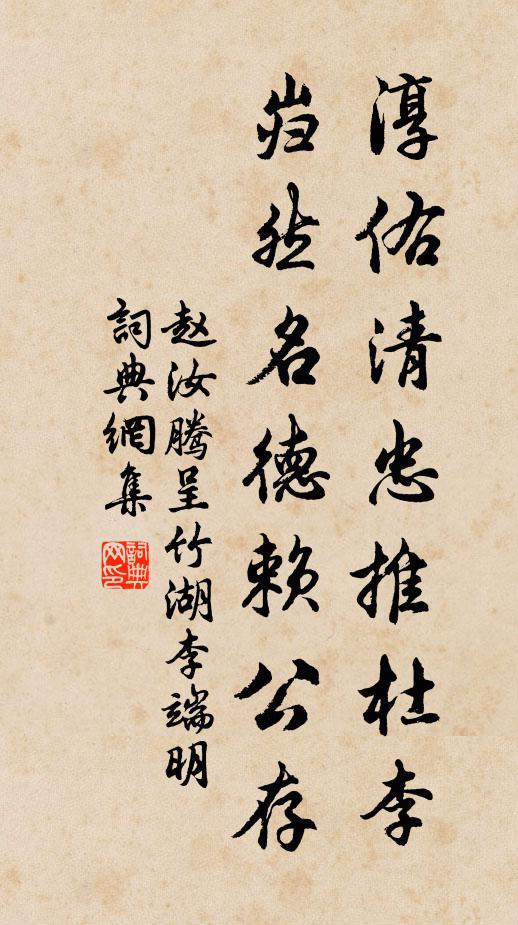 淳佑清忠推杜李
岿然名德赖公存
赵汝腾呈竹湖李端明
詞典網集
詞典网印